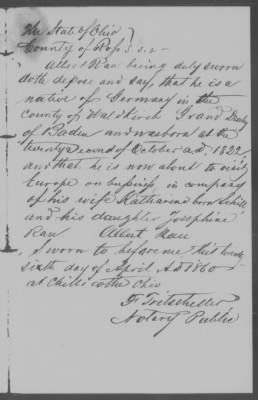 The State of Ohio
County of Ross S.S.
Albert Rau being duly sworn
doth depose and say, that he is a
native of Germany in the
county of Waldkirch Grand Duchy
of Baden and was born at the
twenty second of October a.d. 1822
and that he is now about to visit
Europe on business in company
of his wife Katharina born Schill
and his daughter Josephine
Rau Albert Rau
Sworn to before me this twenty
sixth day of April AD 1860
at Chillicothe Ohio
F. Tritscheller
Notary Public